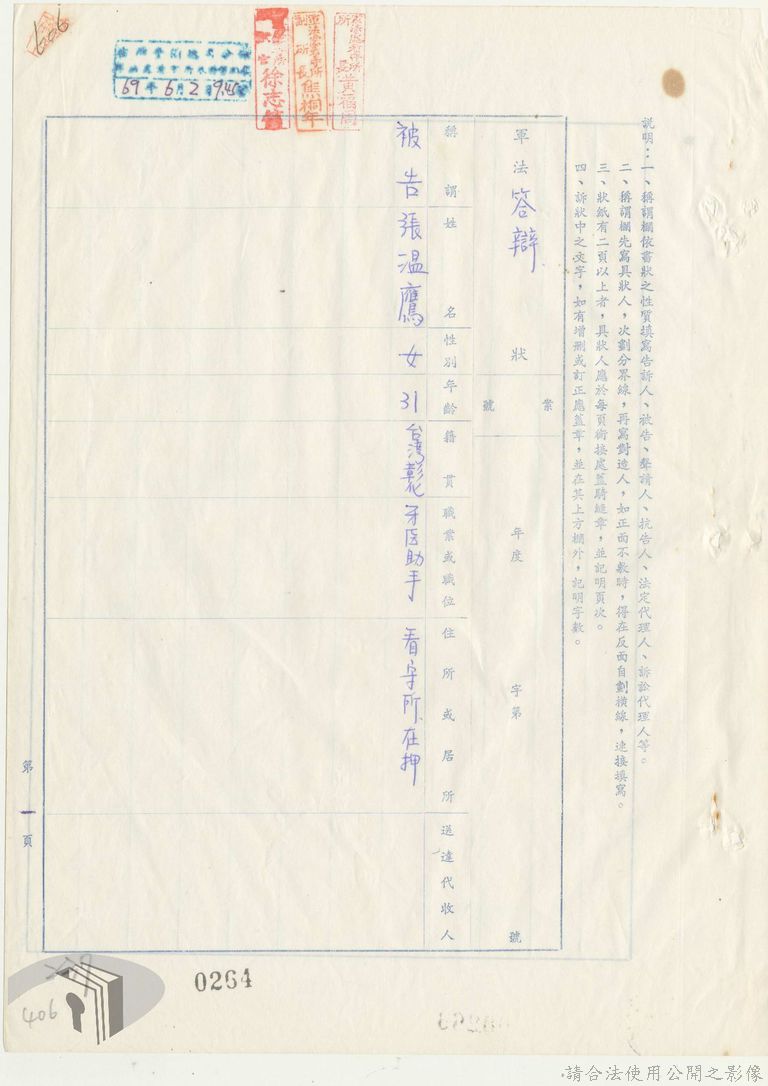 說明：一、稱謂欄依書狀之性質填寫告訴人、被告、聲請人、抗告人、法定代理人、訴訟代理人等。
二、稱謂欄先寫具狀人，次劃分界線，再寫對造人，如正面不敷時，得在反面自劃橫線，連接填寫。
三、狀紙有二頁以上者，具狀人應於每頁銜接處蓋騎縫章，並記明頁次。
四、訴狀中之文字，如有增刪或訂正應蓋章，並在其上方欄外，記明字數。
軍法答辯狀
案號
年度
字第
號
稱謂
姓名
性別
年齡
籍貫
職業或職位
住所或居所
送達代收人
被告張溫鷹
女
31
台灣彰化
牙医助手
看守所在押
第一頁
所長
副所長熊桐年
徐志
69年6月2日9.45
606
406
0264
請合法使用公開之影像